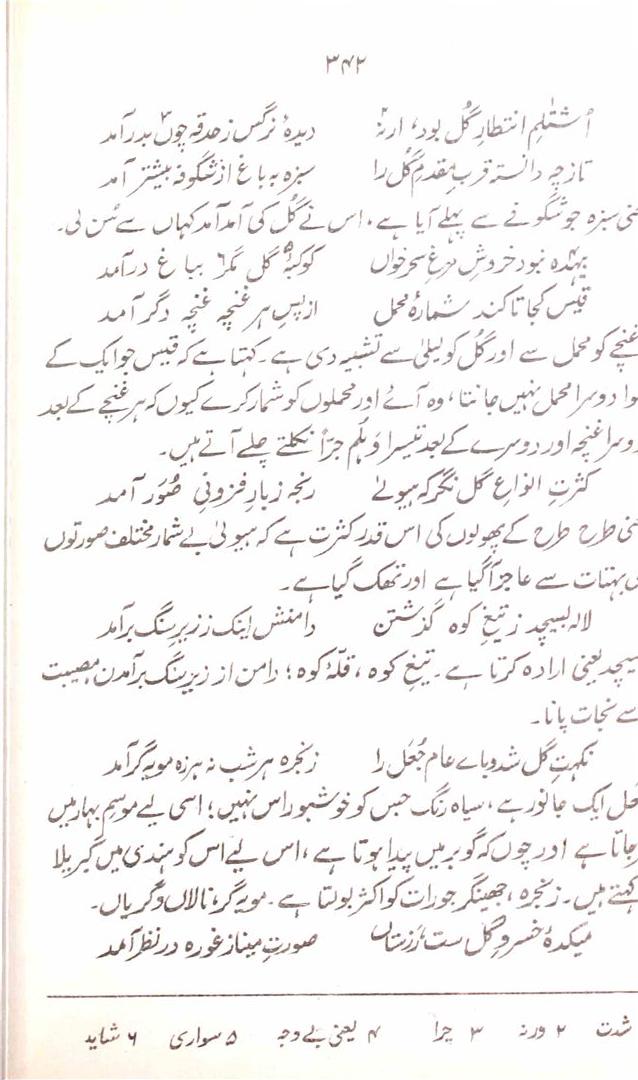 ۳۴۲
اُشتلمِ انتظارِ گُل بود، ارنہ۲ دیدۂ نرگس ز حدقہ چوں۳ بدر آمد
تا ز چہ دانستہ قربِ مقدمِ گُل را سبزہ بہ باغ از شگوفہ بیشتر آمد
نی سبزہ جو شگونے سے پہلے آیا ہے، اس نے گُل کی آمد آمد کہاں سے سُن لی۔
بیہُدہ۴ نبود خروشِ مرغِ سحرخواں کوکبۂ۵ گل مگر۶ بباغ درآمد
قیس کجا تا کند شمارۂ محمل از پسِ ہر غنچہ غنچہ دگر آمد
غنچے کو محمل سے اور گُل کو لیلیٰ سے تشبیہ دی ہے۔ کہتا ہے کہ قیس جو ایک کے
وا دوسرا محمل نہیں جانتا، وہ آئے اور محملوں کو شمار کرے کیوں کہ ہر غنچے کے بعد
وسرا غنچہ اور دوسرے کے بعد تیسرا وَہلُم جرّاً نکلتے چلے آتے ہیں۔
کثرتِ انواعِ گل نگر کہ ہیولےٰ رنجہ زبارِ فزونیِ صُوَر آمد
نی طرح طرح کے پھولوں کی اس قدر کثرت ہے کہ ہیولیٰ بے شمار مختلف صورتوں
ں بہتات سے عاجز آ گیا ہے اور تھک گیا ہے۔
لالہ بسیچد ز تیغِ کوہ گذشتن دامنش اینک ز زیرِ سنگ برآمد
سیچد یعنی ارادہ کرتا ہے۔ تیغِ کوہ، قلّۂ کوہ؛ دامن از زیرِ سنگ برآمدن مصیبت
سے نجات پانا۔
نکہتِ گل شد وباے عام جُعَل را زنجرہ ہر شب نہ ہرزہ مویہ گر آمد
عَل ایک جانور ہے، سیاہ رنگ جس کو خوشبو راس نہیں؛ اسی لیے موسمِ بہار میں
رجاتا ہے اور چوں کہ گوبر میں پیدا ہوتا ہے، اس لیے اس کو ہندی میں گبریلا
کہتے ہیں۔ زنجرہ، جھینگر جو رات کو اکثر بولتا ہے۔ مویہ گر، نالاں و گریاں۔
میکدۂ خسروِ گُل ست رزستاں صورتِ مینا ز غورہ در نظر آمد
شدت ۲ ورنہ ۳ چرا ۴ یعنی بے وجہ ۵ سواری ۶ شاید